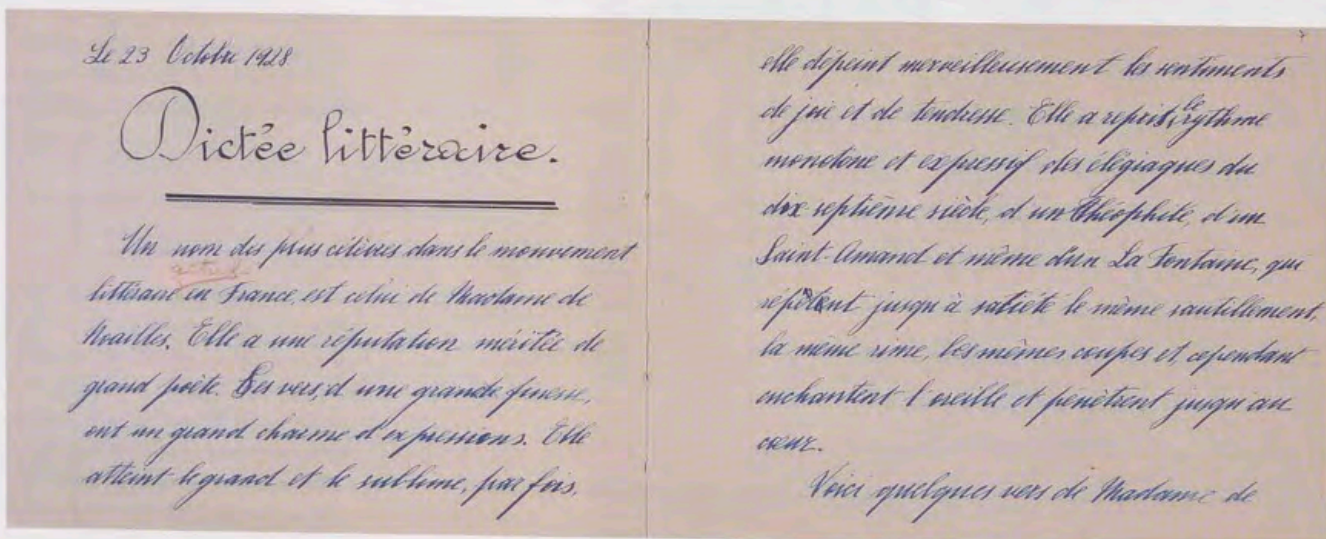 Le 23 Octobre 1928
Dictée littéraire.
Un nom des plus célèbres dans le mouvement
actuel
littéraire en France, est celui de Madame de
Noailles. Elle a une réputation méritée de
grand poète. Ses vers, d'une grande finesse,
ont un grand charme d'expressions. Elle
atteint le grand et le sublime, par fois,
elle dépeint merveilleusement les sentiments
de joie et de tendresse. Elle a repris, le rythme
monotone et expressif des élégiaques du
dix septième siècle, d'un Théophile, d'un
Saint-Amand et même d'un La Fontaine, qui
répètent jusqu'à satiété le même sautillement,
la même rime, les mêmes coupes et, cependant
enchantent l'oreille et pénètrent jusqu'au
cœur.
Voici quelques vers de Madame de